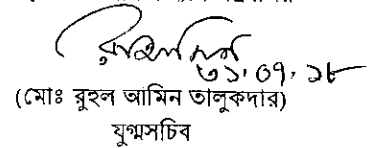 ৩১.০৭.১৮
(মোঃ রুহুল আমিন তালুকদার)
যুগ্মসচিব